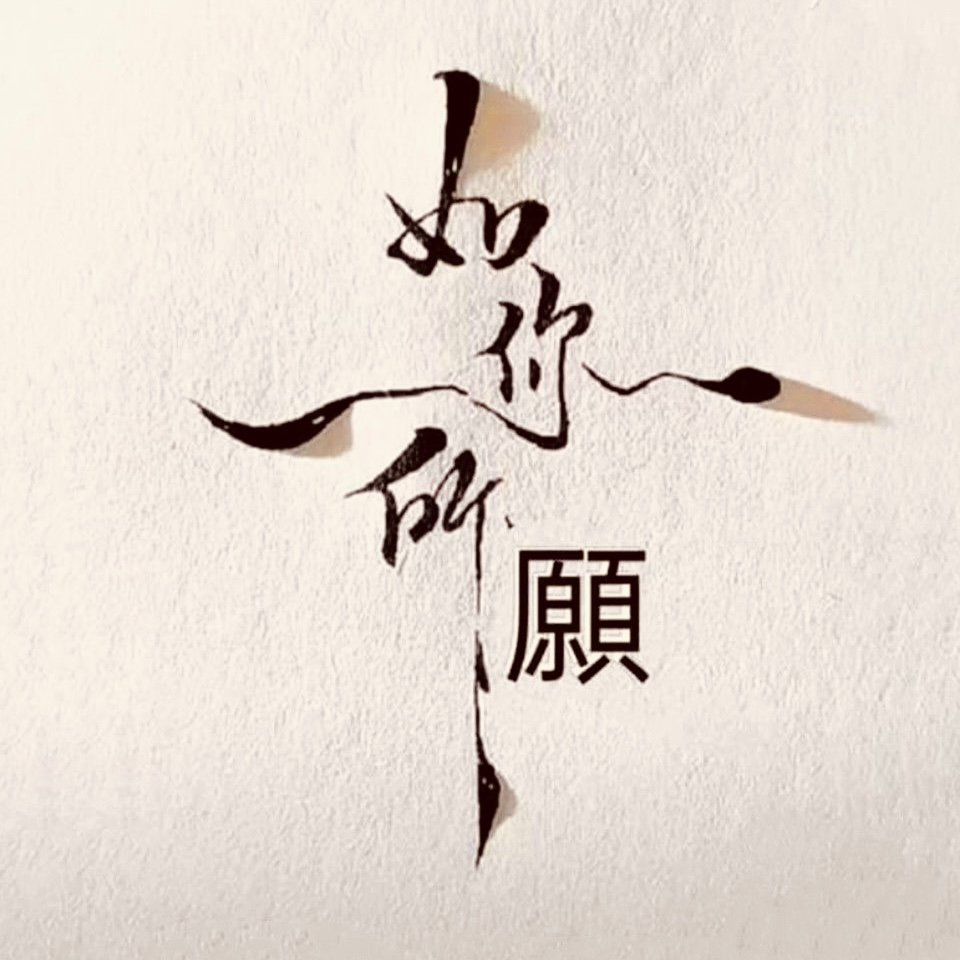 如
你
所
願